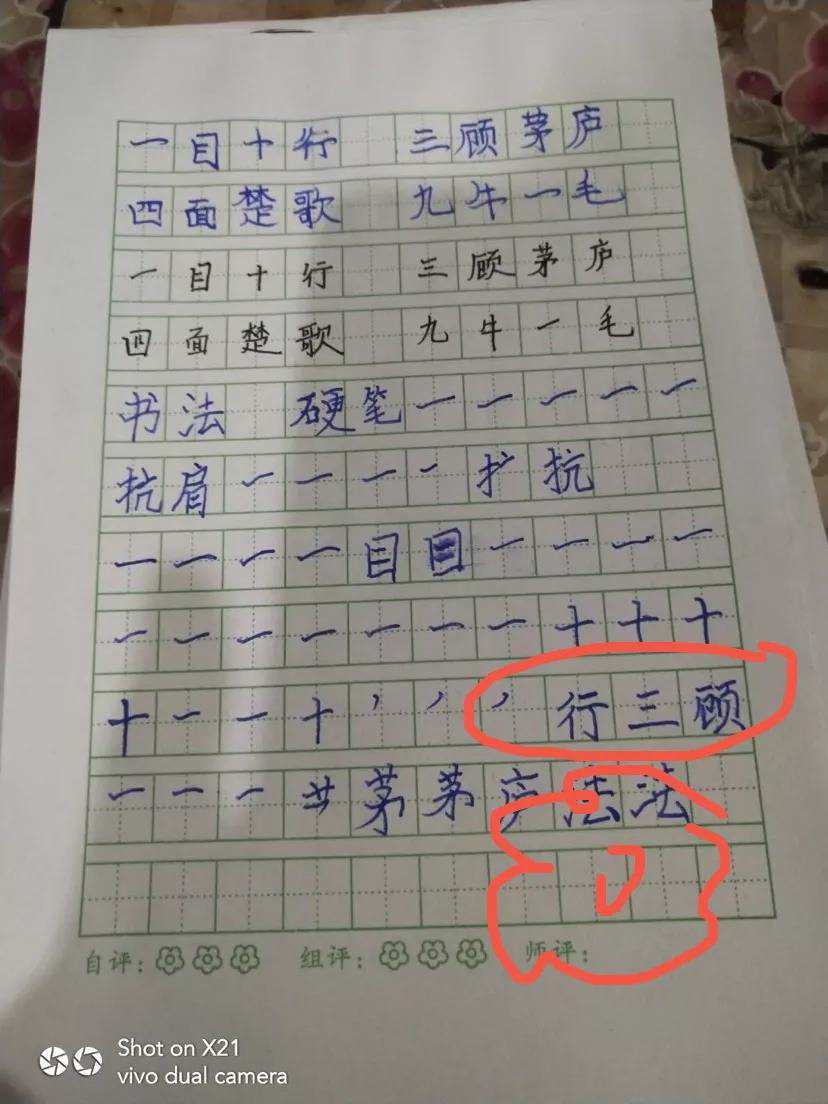 一目十行 三顾茅庐
四面楚歌 九牛一毛
一目十行 三顾茅庐
四面楚歌 九牛一毛
书法 硬笔一一一一一
抗肩一一一一扩抗
一一一一目目一一一一
一一一一一一一十十十
十一一十丿丿丿行三顾
一一一艹茅茅庐法法
自评： 组评： 师评：
Shot on X21
vivo dual camera